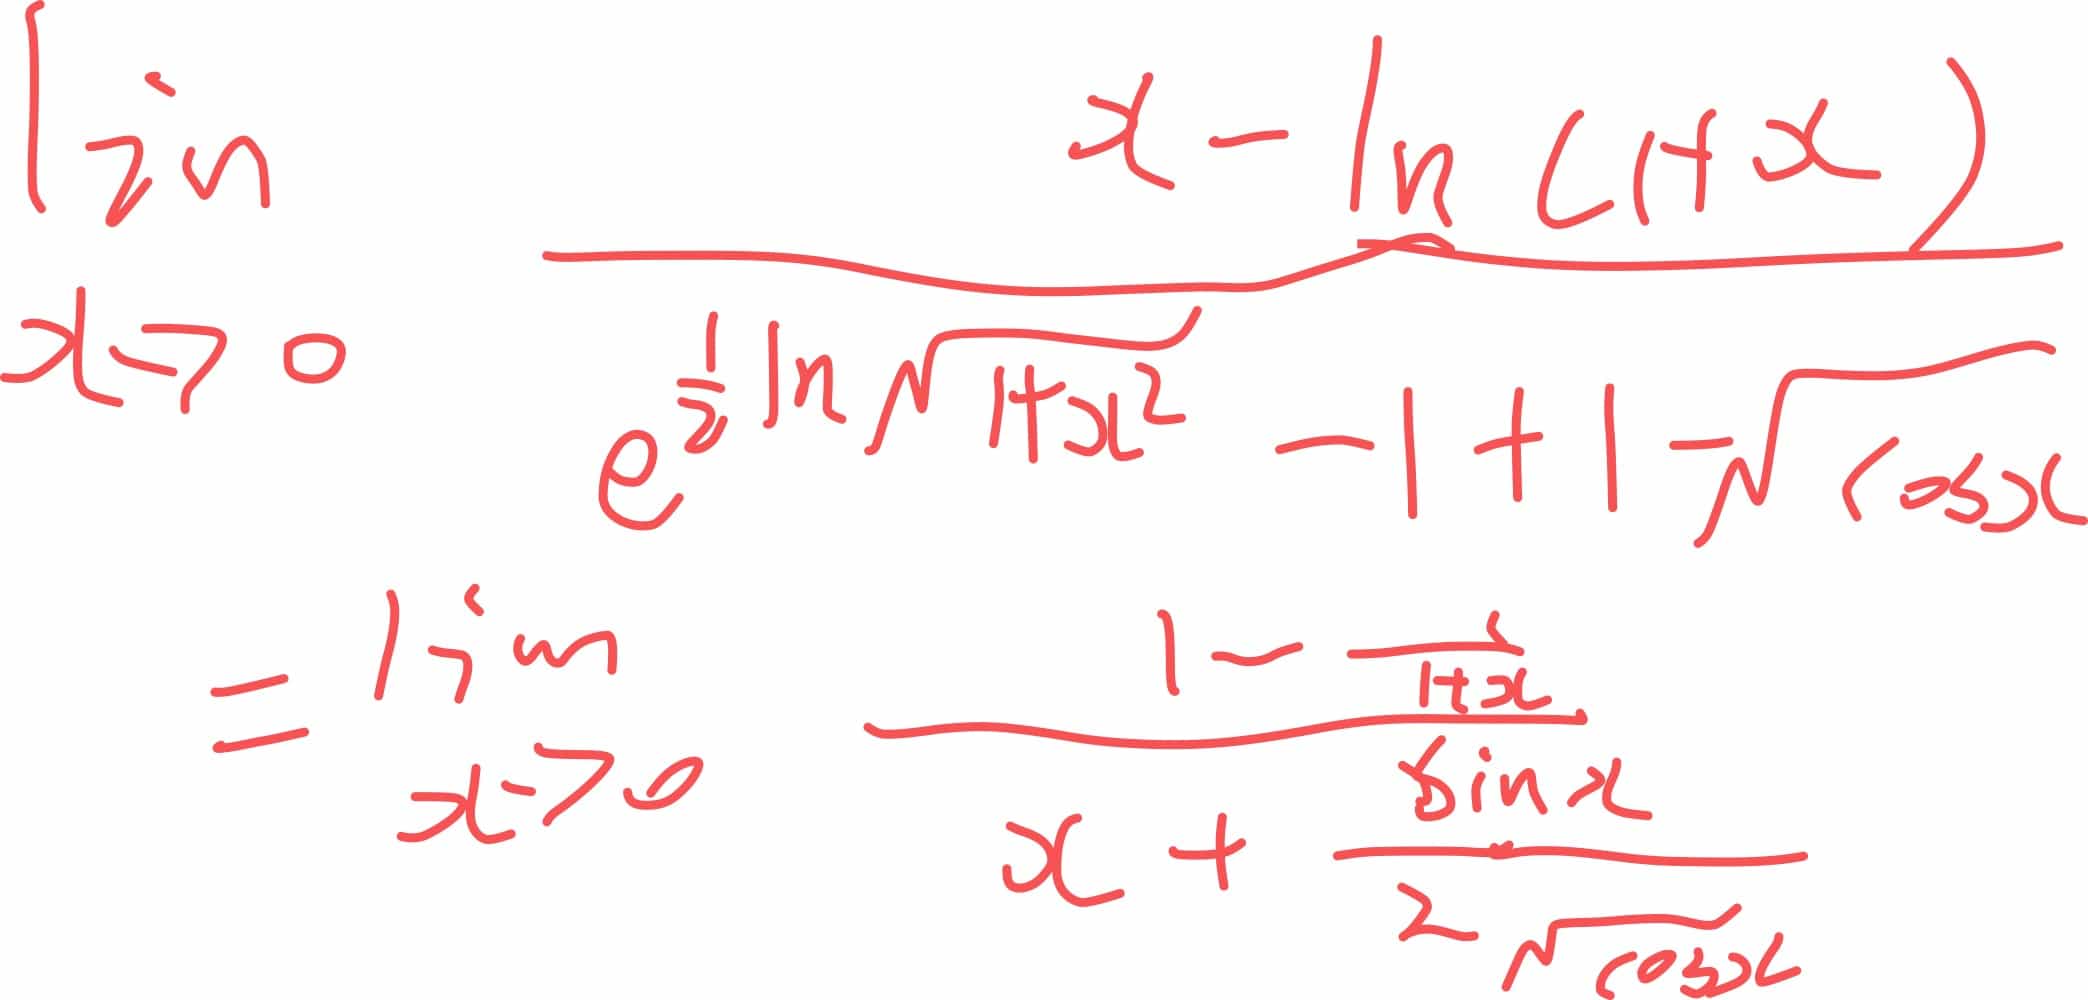 \lim_{x \to 0} \frac{x - \ln(1+x)}{e^{\frac{1}{2} \ln \sqrt{1+x^2}} - 1 + 1 - \sqrt{\cos x}}
= \lim_{x \to 0} \frac{1 - \frac{1}{1+x}}{x + \frac{\sin x}{2\sqrt{\cos x}}}